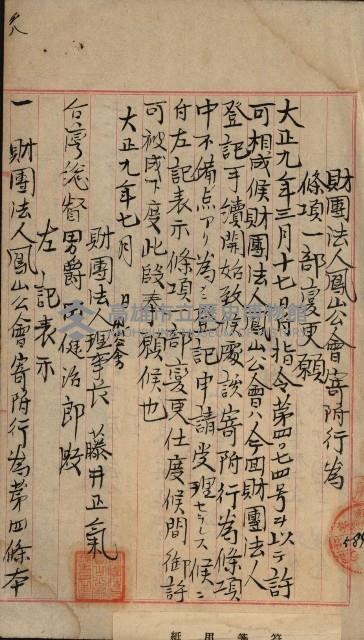 財團法人鳳山公會寄附行為
條項一部變更願
大正九年三月十七日付指令第四〇七四号ヲ以テ許
可相成候財團法人鳳山公會ハ今回財團法人
登記手續開始致候處該寄附行為條項
中不備点アリ為ニ登記申請受理セラレス候ニ
付左記表示條項一部変更仕度候間御許
可被成下度此段奉願候也
大正九年七月 日
財團法人鳳山公會
理事長 藤井正氣
台灣總督男爵田健治郎殿
左記表示
一 財團法人鳳山公會寄附行為第四條本
高雄市立歷史博物館
用箋